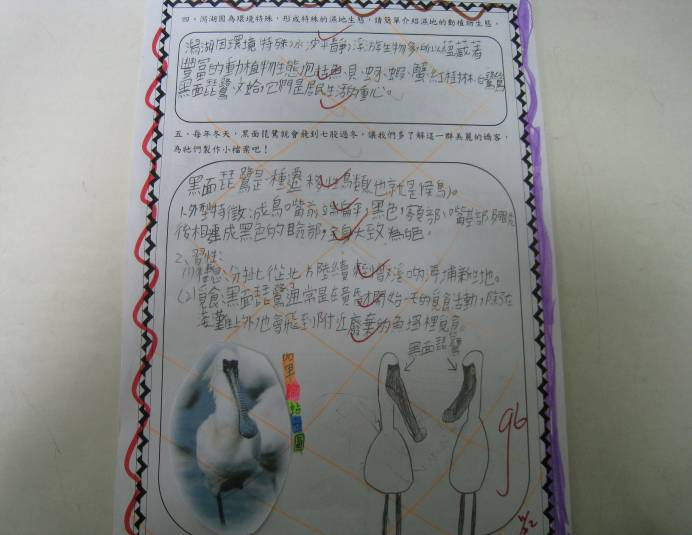 四、潟湖因為環境特殊,形成特殊的濕地生態,請簡單介紹濕地的動植物生態。
潟湖因環境特殊,水沙平靜,浮游生物多,所以蘊藏著
豐富的動植物生態,包括魚、貝、蚵、蝦、蟹、紅樹林、白鷺鷥
黑面琵鷺、文蛤,它們是居民生活的重心。
五、每年冬天,黑面琵鷺就會飛到七股過冬,讓我們多了解這一群美麗的嬌客,
為牠們製作小檔案吧!
黑面琵鷺是一種遷移性鳥類(也就是候鳥)。
1.外型特徵:成鳥嘴前端扁平,黑色,額部、嘴基部、眼先
後相連成黑色的臉部,全身大致為白色。
2、習性:
(1)棲息:分批從北方陸續飛
(2)覓食:黑面琵鷺通常是在黃昏才開始一天的覓食活動,除在
淺灘外,也會飛到附近廢棄的魚塭裡覓食。
黑面琵鷺
圖
96